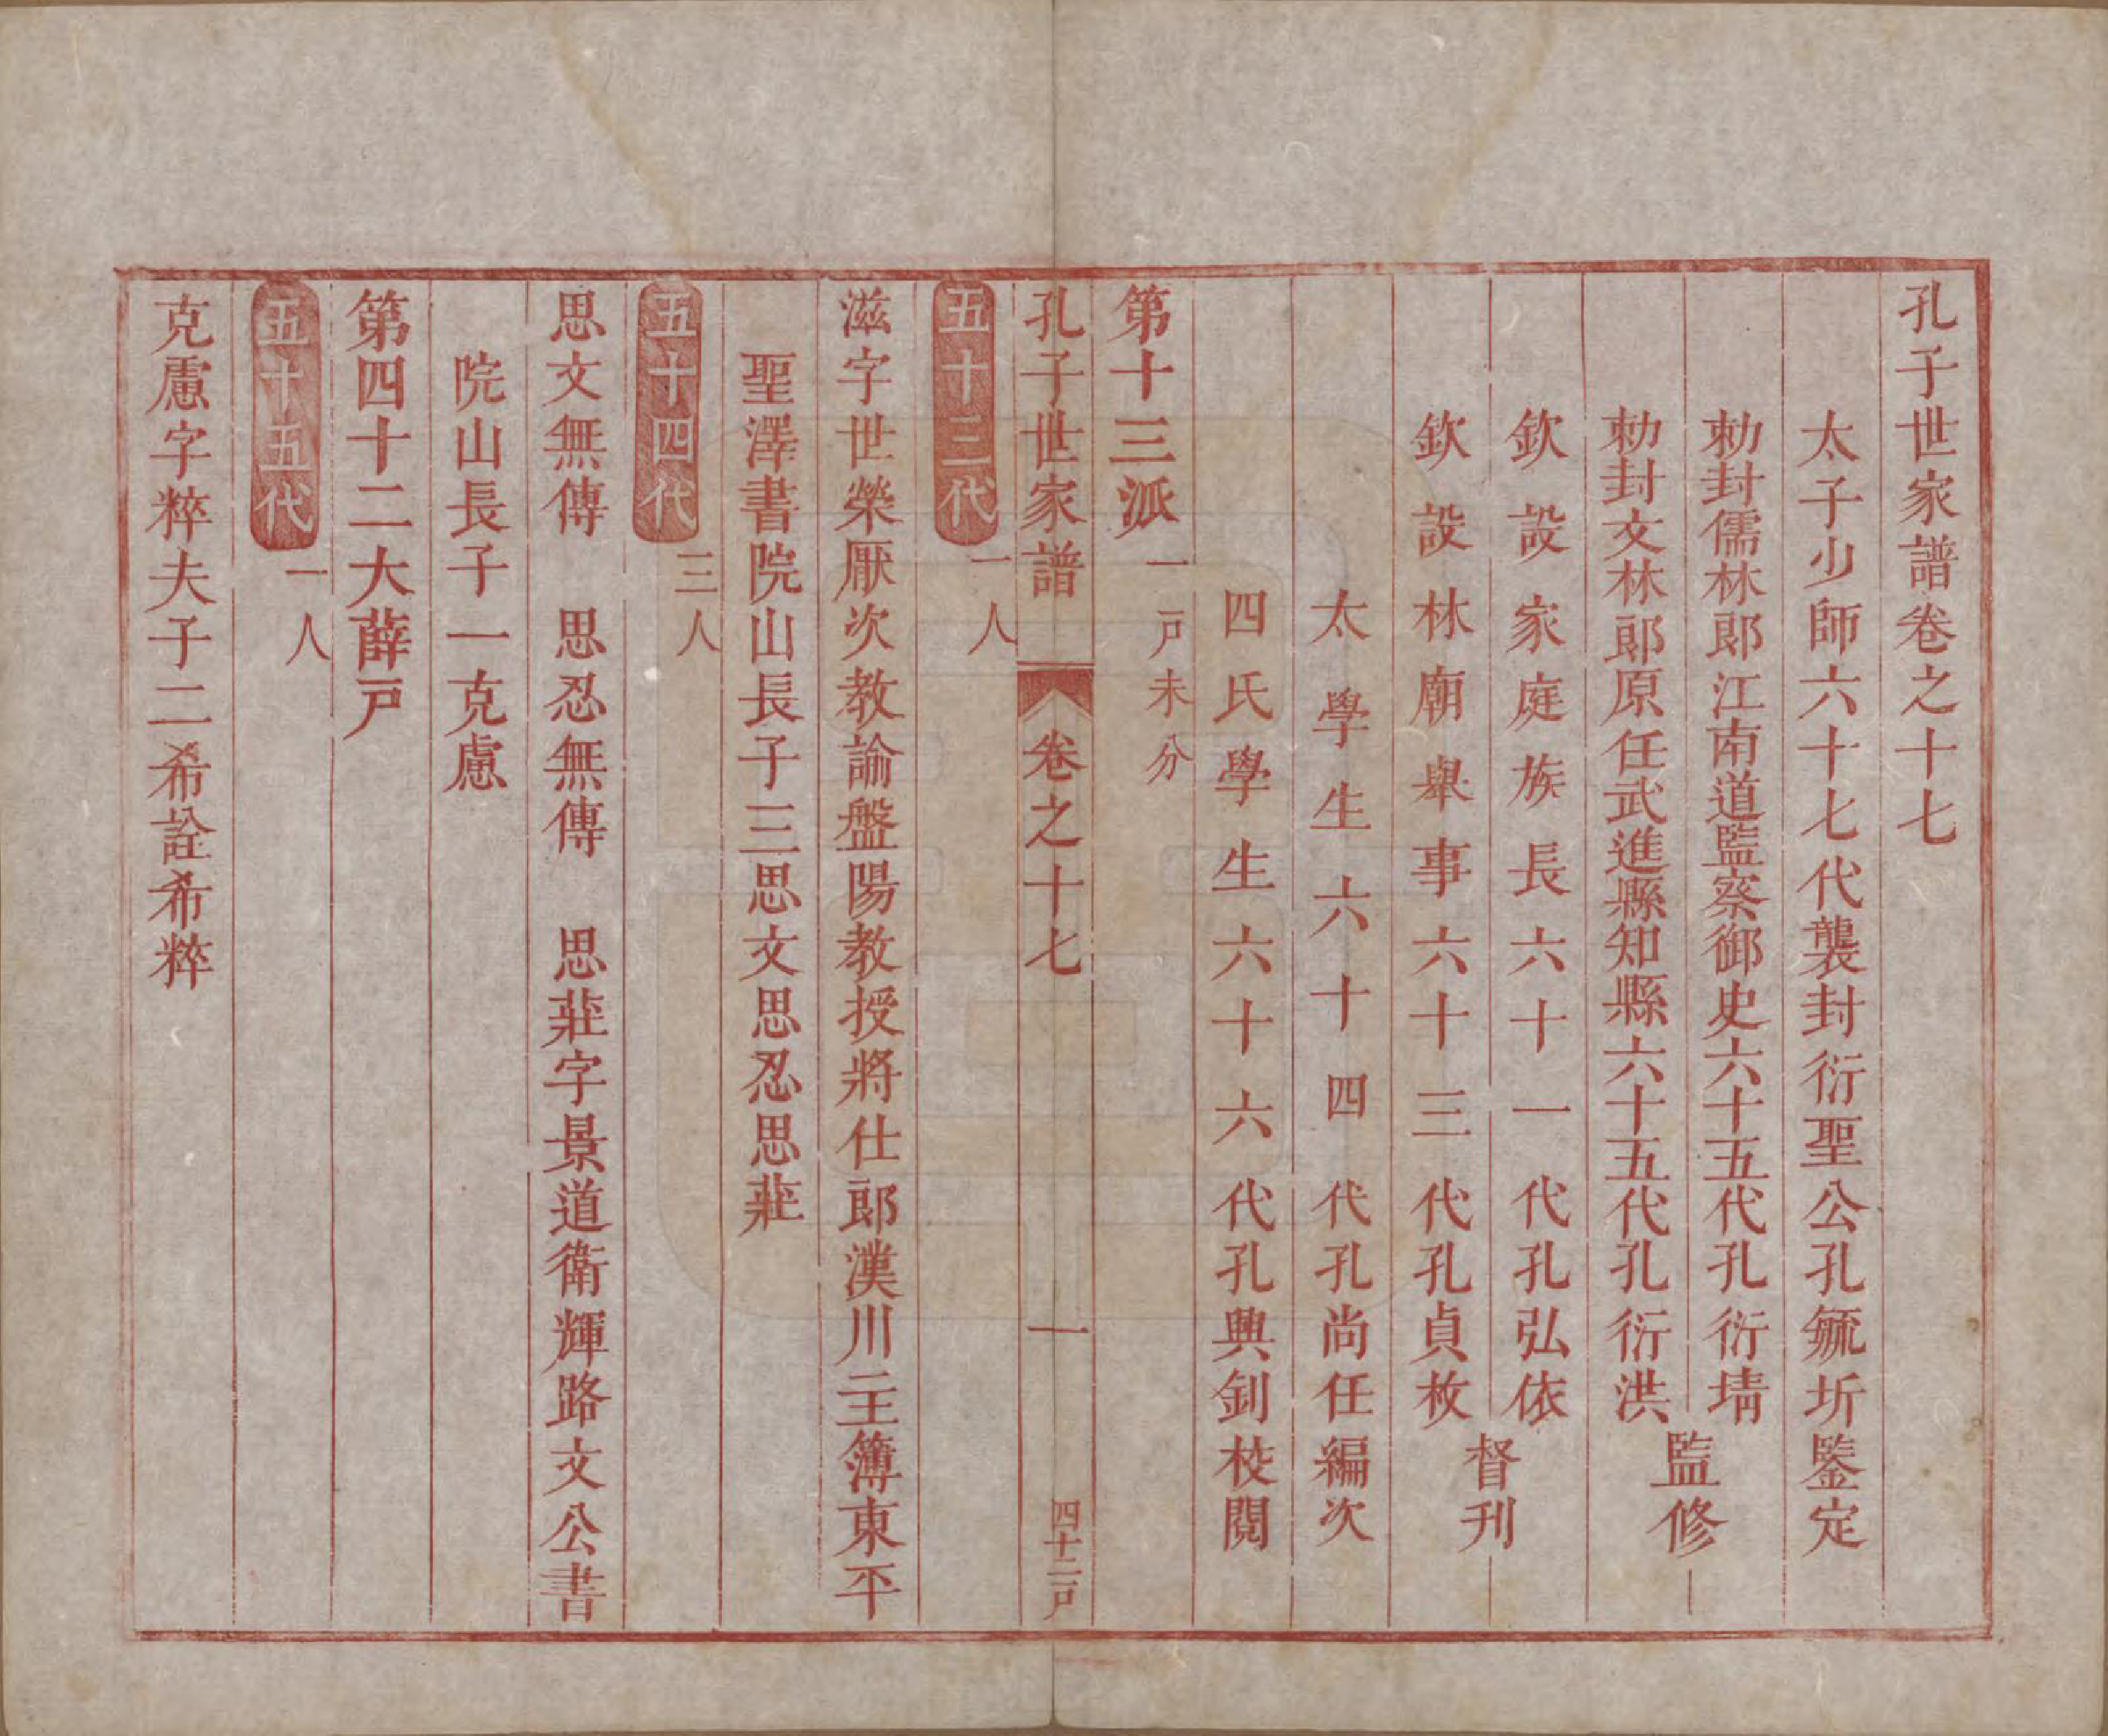 孔子世家譜卷之十七
太子少師六十七代襲封衍聖公孔毓圻鑒定
勅封儒林郎江南道監察御史六十五代孔衍堶
勅封文林郎原任武進縣知縣六十五代孔衍洪
監修
欽設家庭族長六十一代孔弘依
欽設林廟舉事六十三代孔貞枚
督刊
太學生六十四代孔尚任編次
四氏學生六十六代孔興釗校閱
第十三派 一戸未分
孔子世家譜 卷之十七 一 四十二戸
五十三代 一人
滋字世榮厭次教諭盤陽教授將仕郎漢川主簿東平
聖澤書院山長子三思文思忍思莊
五十四代 三人
思文無傳 思忍無傳 思莊字景道衛輝路文公書
院山長子一克慮
第四十二大薛戸
五十五代 一人
克慮字粹夫子二希詮希粹